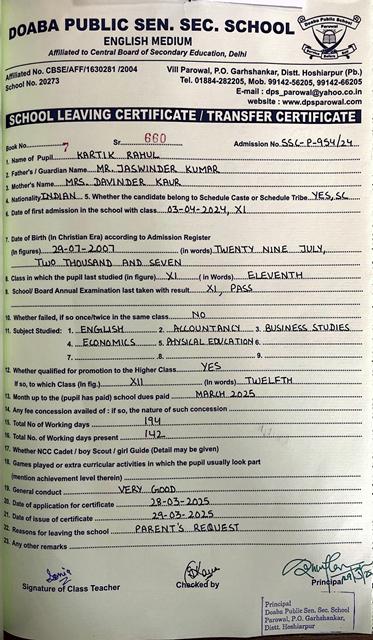 DOABA PUBLIC SEN. SEC. SCHOOL
ENGLISH MEDIUM
Affiliated to Central Board of Secondary Education, Delhi
Affiliated No. CBSE/AFF/1630281 /2004
School No. 20273
Vill Parowal, P.O. Garhshankar, Distt. Hoshiarpur (Pb.)
Tel. 01884-282205, Mob. 99142-56205, 99142-66205
E-mail : dps_parowal@yahoo.co.in
website : www.dpsparowal.com
SCHOOL LEAVING CERTIFICATE / TRANSFER CERTIFICATE
Book No 7 Sr 660 Admission No. SSC-P-954/24
1. Name of Pupil KARTIK RAHUL
2. Father's / Guardian Name MR. JASWINDER KUMAR
3. Mother's Name MRS. DAVINDER KAUR
4. Nationality INDIAN 5. Whether the candidate belong to Schedule Caste or Schedule Tribe YES, SC
6. Date of first admission in the school with class 03-04-2024, XI
7. Date of Birth (In Christian Era) according to Admission Register
(In figures) 29-07-2007 (in words) TWENTY NINE JULY,
TWO THOUSAND AND SEVEN
8. Class in which the pupil last studied (in figure) XI (in Words) ELEVENTH
9. School/ Board Annual Examination last taken with result XI, PASS
10. Whether failed, if so once/twice in the same class NO
11. Subject Studied : 1. ENGLISH 2. ACCOUNTANCY 3. BUSINESS STUDIES
4. ECONOMICS 5. PHYSICAL EDUCATION 6.
7. 8. 9.
12. Whether qualified for promotion to the Higher Class YES
If so, to which Class (In fig.) XII (In words) TWELFTH
13. Month up to the (pupil has paid) school dues paid MARCH 2025
14. Any fee concession availed of : if so, the nature of such concession
15. Total No of Working days 194
16. Total No. of Working days present 142
17. Whether NCC Cadet / boy Scout / girl Guide (Detail may be given)
18. Games played or extra curricular activities in which the pupil usually look part
(mention achievement level therein)
19. General conduct VERY GOOD
20. Date of application for certificate 28-03-2025
21. Date of issue of certificate 29-03-2025
22. Reasons for leaving the school PARENT'S REQUEST
23. Any other remarks
Signature of Class Teacher Checked by Principal
Principal
Doaba Public Sen. Sec. School
Parowal, P.O. Garhshankar,
Distt. Hoshiarpur